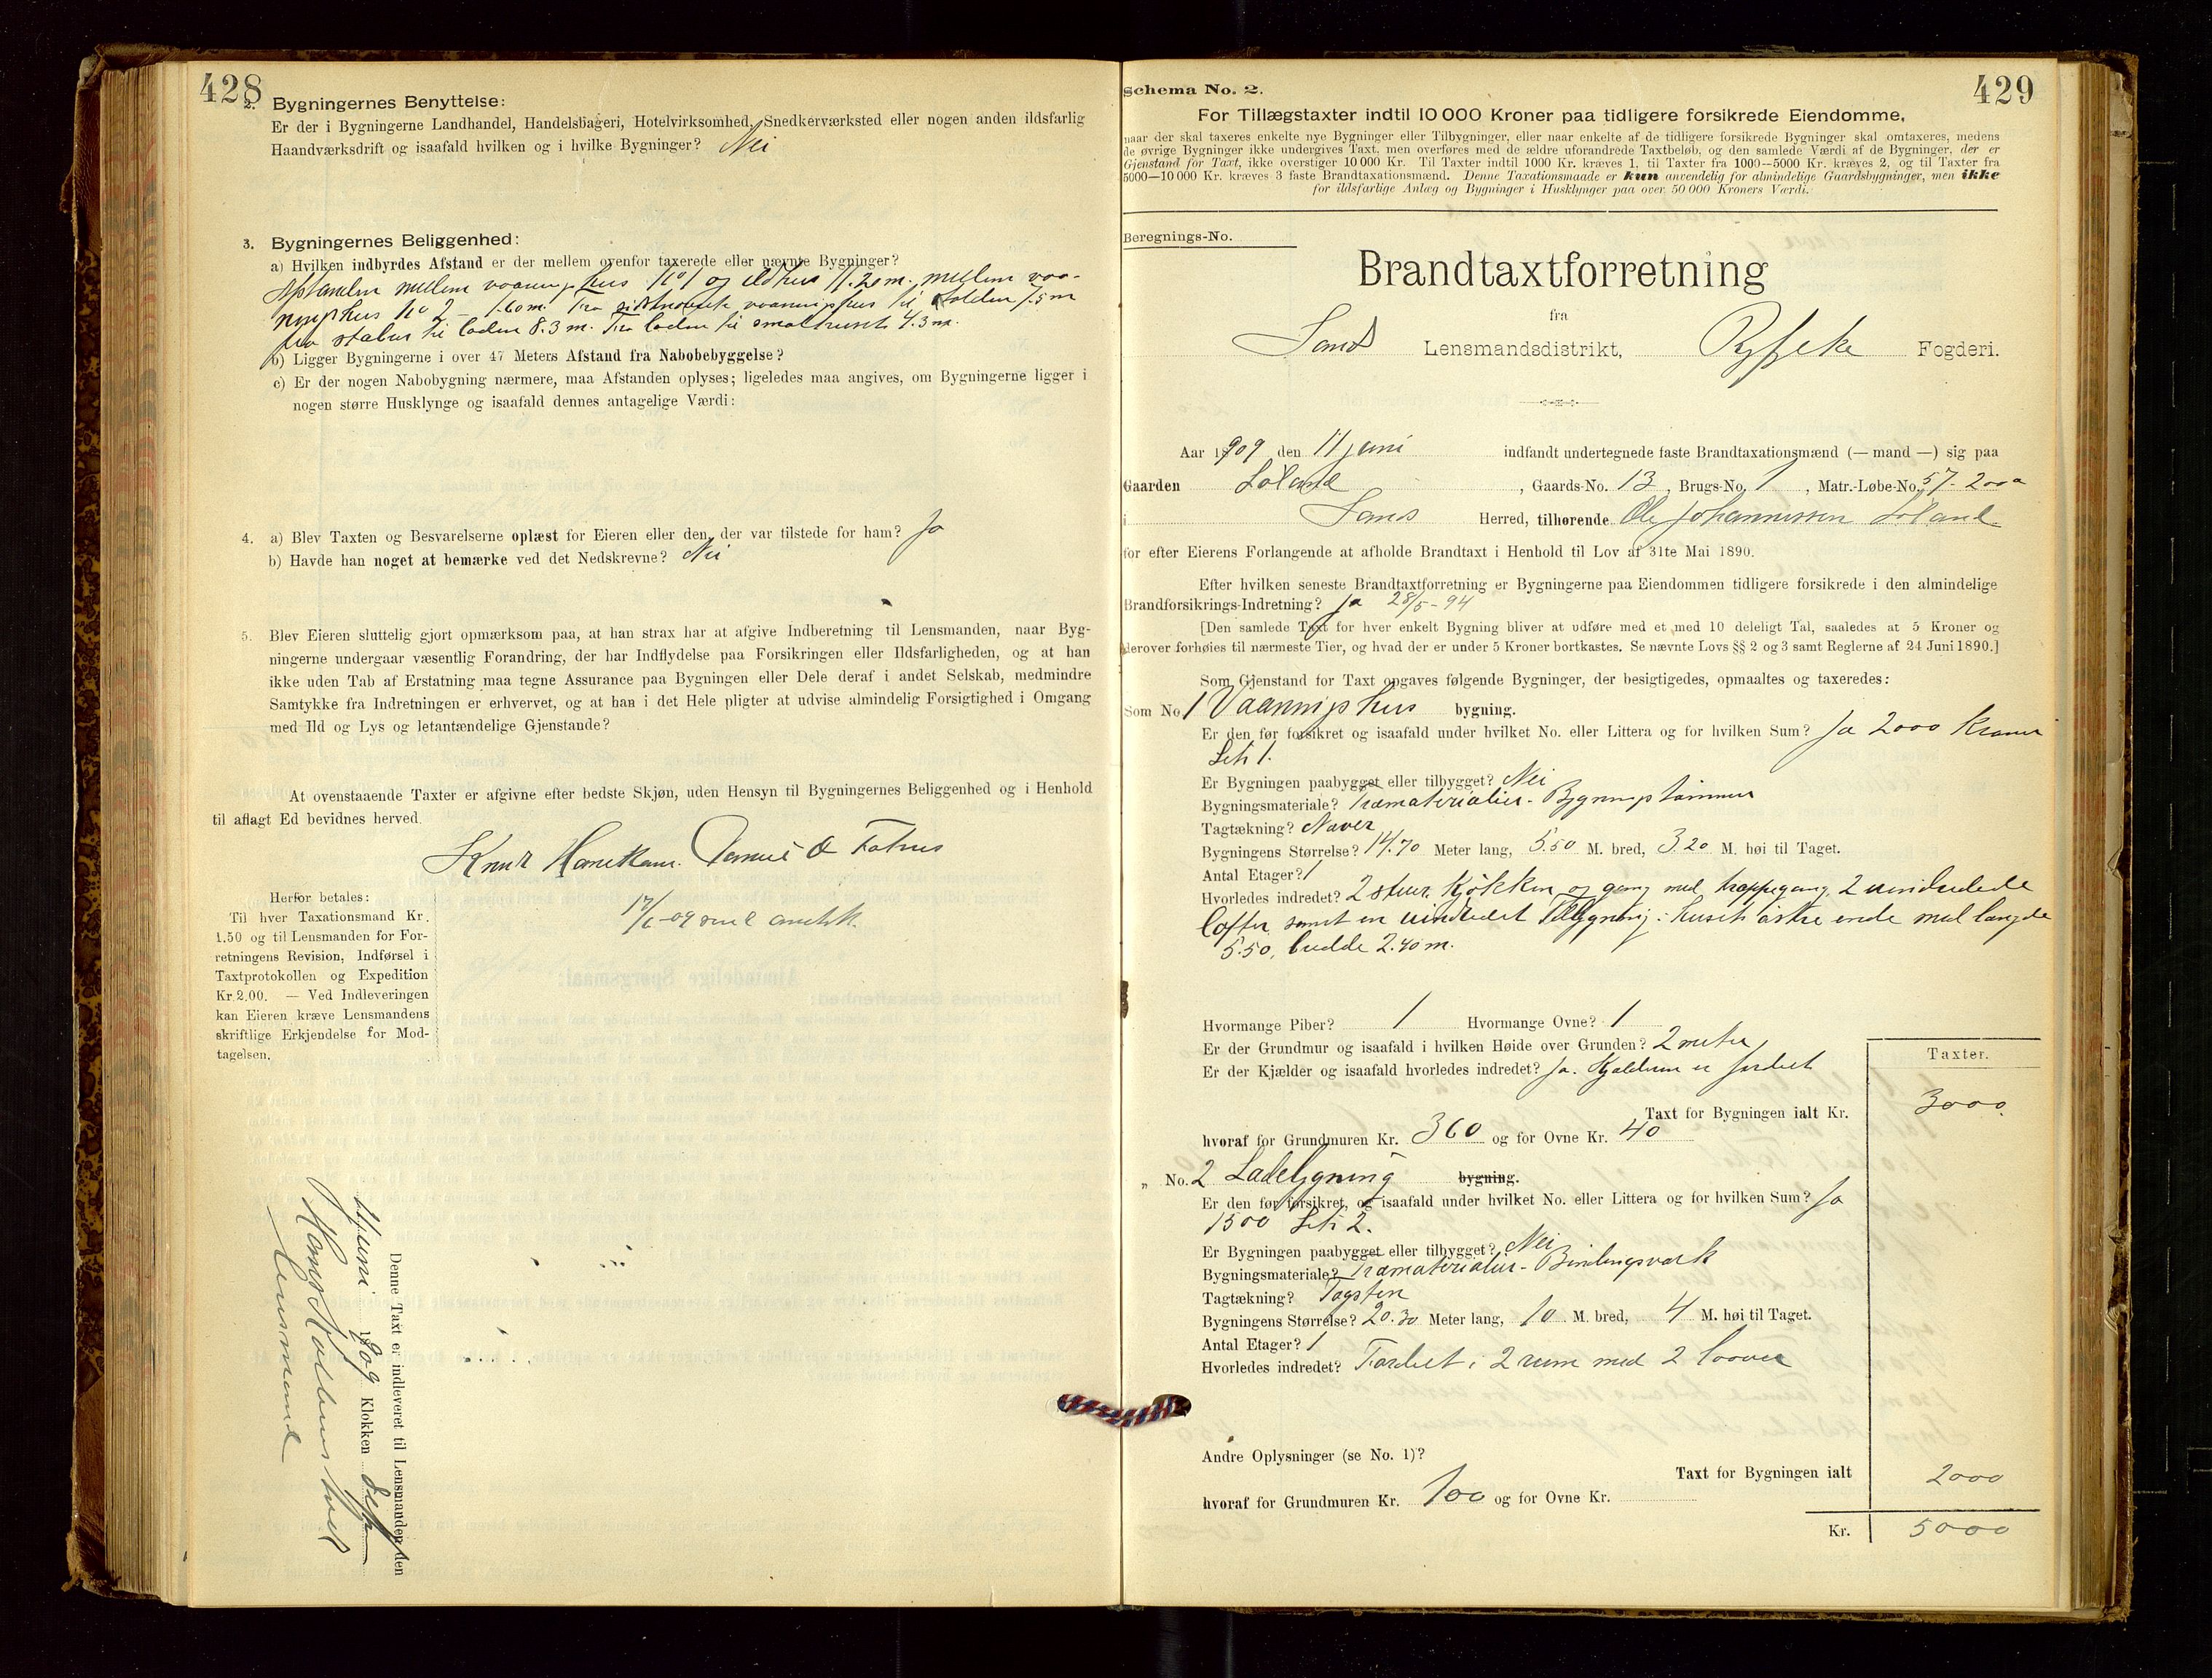 428
2. Bygningernes Benyttelse:
Er der i Bygningerne Landhandel, Handelsbageri, Hotelvirksomhed, Snedkerværksted eller nogen anden ildsfarlig
Haandværksdrift og isaafald hvilken og i hvilke Bygninger? Nei
3. Bygningernes Beliggenhed:
a) Hvilken indbyrdes Afstand er der mellem ovenfor taxerede eller nævnte Bygninger?
Afstanden mellem vaaningshus No 1 og ildhus 11.20 m. mellem vaa-
ningshus No 2 - 1.60 m. Fra vaaningshus til 75 m
fra stabur til laden 8.3 m. Fra laden til smalehuset 4.3 m.
b) Ligger Bygningerne i over 47 Meters Afstand fra Nabobebyggelse?
c) Er der nogen Nabobygning nærmere, maa Afstanden oplyses; ligeledes maa angives, om Bygningerne ligger i
nogen større Husklynge og isaafald dennes antagelige Værdi:
4. a) Blev Taxten og Besvarelserne oplæst for Eieren eller den, der var tilstede for ham? Ja
b) Havde han noget at bemærke ved det Nedskrevne? Nei
5. Blev Eieren sluttelig gjort opmærksom paa, at han strax har at afgive Indberetning til Lensmanden, naar Byg-
ningerne undergaar væsentlig Forandring, der har Indflydelse paa Forsikringen eller Ildsfarligheden, og at han
ikke uden Tab af Erstatning maa tegne Assurance paa Bygningen eller Dele deraf i andet Selskab, medmindre
Samtykke fra Indretningen er erhvervet, og at han i det Hele pligter at udvise almindelig Forsigtighed i Omgang
med Ild og Lys og letantændelige Gjenstande?
At ovenstaaende Taxter er afgivne efter bedste Skjøn, uden Hensyn til Bygningernes Beliggenhed og i Henhold
til aflagt Ed bevidnes herved.
Knut
17/6-09
Herfor betales:
Til hver Taxationsmand Kr.
1.50 og til Lensmanden for For-
retningens Revision, Indførsel i
Taxtprotokollen og Expedition
Kr. 2.00. — Ved Indleveringen
kan Eieren kræve Lensmandens
skriftlige Erkjendelse for Mod-
tagelsen.
Denne Taxt er indleveret til Lensmanden den
Juni 1909 Klokken
Lensmand
429
Schema No. 2.
For Tillægstaxter indtil 10 000 Kroner paa tidligere forsikrede Eiendomme,
naar der skal taxeres enkelte nye Bygninger eller Tilbygninger, eller naar enkelte af de tidligere forsikrede Bygninger skal omtaxeres, medens
de øvrige Bygninger ikke undergives Taxt, men overføres med de ældre uforandrede Taxtbeløb, og den samlede Værdi af de Bygninger, der er
Gjenstand for Taxt, ikke overstiger 10 000 Kr. Til Taxter indtil 1000 Kr. kræves 1, til Taxter fra 1000—5000 Kr. kræves 2, og til Taxter fra
5000—10 000 Kr. kræves 3 faste Brandtaxationsmænd. Denne Taxationsmaade er kun anvendelig for almindelige Gaardsbygninger, men ikke
for ildsfarlige Anlæg og Bygninger i Husklynger paa over 50 000 Kroners Værdi.
Beregnings-No.
Brandtaxtforretning
fra
Sands Lensmandsdistrikt, Ryfylke Fogderi.
Aar 1909 den 11 juni indfandt undertegnede faste Brandtaxationsmænd (— mand —) sig paa
Gaarden Løland, Gaards-No. 13, Brugs-No. 1, Matr.-Løbe-No. 57. 200a
i Sands Herred, tilhørende Ole Johannessen Løland
for efter Eierens Forlangende at afholde Brandtaxt i Henhold til Lov af 31te Mai 1890.
Efter hvilken seneste Brandtaxtforretning er Bygningerne paa Eiendommen tidligere forsikrede i den almindelige
Brandforsikrings-Indretning? Ja 28/5-94
[Den samlede Taxt for hver enkelt Bygning bliver at udføre med et med 10 deleligt Tal, saaledes at 5 Kroner og
derover forhøies til nærmeste Tier, og hvad der er under 5 Kroner bortkastes. Se nævnte Lovs §§ 2 og 3 samt Reglerne af 24 Juni 1890.]
Som Gjenstand for Taxt opgaves følgende Bygninger, der besigtigedes, opmaaltes og taxeredes:
Som No 1 Vaaningshus bygning.
Er den før forsikret og isaafald under hvilket No. eller Littera og for hvilken Sum? Ja 2000 Kroner
Litr 1.
Er Bygningen paabygget eller tilbygget? Nei
Bygningsmateriale? Træmaterialier - Bygningstømmer
Tagtækning? Næver
Bygningens Størrelse? 14.70 Meter lang, 5.50 M. bred, 3.20 M. høi til Taget.
Antal Etager? 1
Hvorledes indredet? 2 stuer, kjøkken og gang med trappegang, 2 uindredede
lofter samt en uindredet Tilbygning i husets østre ende med længde
5.50, bredde 2.40 m.
Hvormange Piber? 1 Hvormange Ovne? 1
Er der Grundmur og isaafald i hvilken Høide over Grunden? 2 meter
Er der Kjælder og isaafald hvorledes indredet? Ja. Kjælderen er fordelt
Taxter.
Taxt for Bygningen ialt Kr. 3000
hvoraf for Grundmuren Kr. 360 og for Ovne Kr. 40
" No. 2 Ladebygning bygning.
Er den før forsikret, og isaafald under hvilket No. eller Littera og for hvilken Sum? Ja
1500 Litr 2.
Er Bygningen paabygget eller tilbygget? Nei
Bygningsmateriale? Træmaterialier - Bindingsværk
Tagtækning? Tagsten
Bygningens Størrelse? 20.30 Meter lang, 10 M. bred, 4 M. høi til Taget.
Antal Etager? 1
Hvorledes indredet? Fordelt i 2 rum med 2 loover
Andre Oplysninger (se No. 1)?
Taxt for Bygningen ialt 2000
hvoraf for Grundmuren Kr. 100 og for Ovne Kr.
Kr. 5000